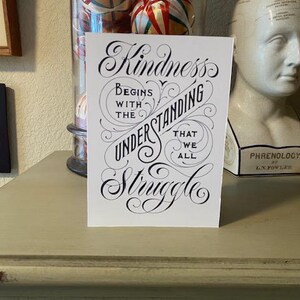 Kindness
BEGINS
WITH
THE
UNDERSTANDING
THAT
WE
ALL
Struggle
PHRENOLOGY
BY
L.N. FOWLER